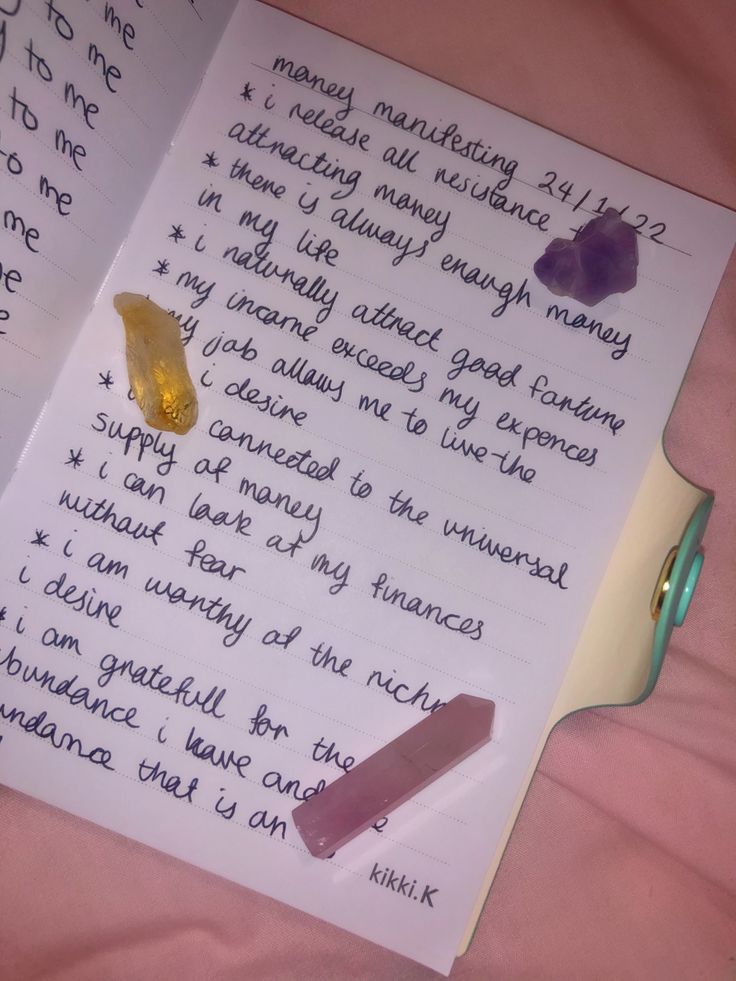 to me
me
to me
to me
to me
to me
me
me
money manifesting 24/1/22
* i release all resistance
attracting money
* there is always enough money
in my life
* i naturally attract good fortune
* my income exceeds my expences
my job allows me to live the
i desire
* connected to the universal
supply of money
* i can look at my finances
without fear
* i am worthy of the
i desire
* i am gratefull for the
abundance i have and
that is on
kikki.K